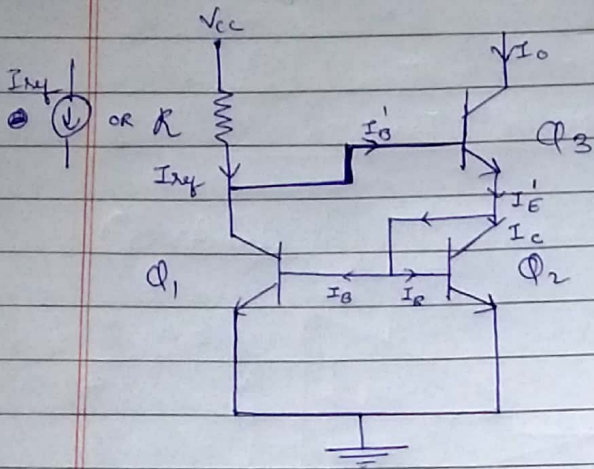 Vcc
Io
Iref
OR R
I'B
Q3
Iref
I'E
Ic
Q1
IB
IB
Q2